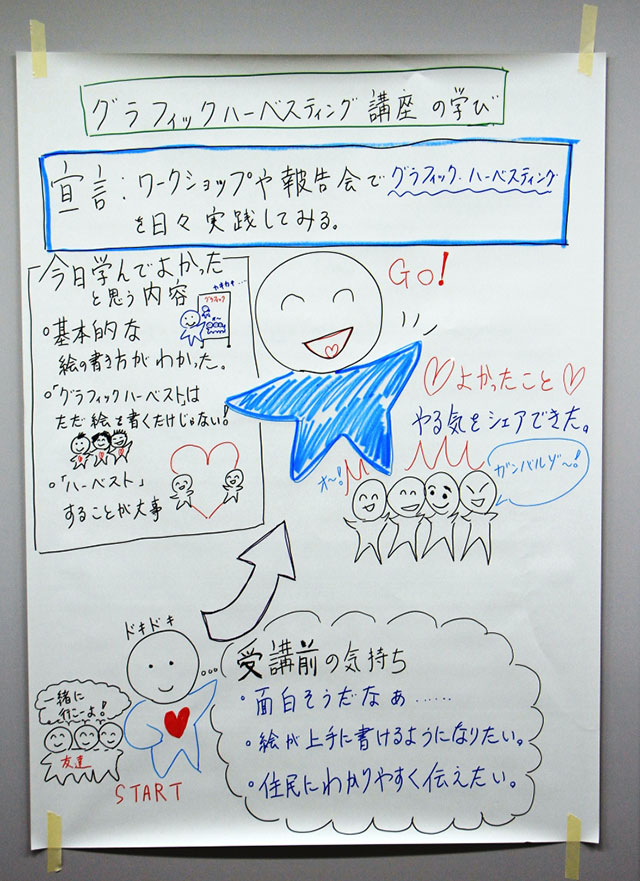 グラフィックハーベスティング 講座 の学び
宣言：ワークショップや報告会でグラフィック・ハーベスティング
を日々実践してみる。
今日学んでよかった
と思う内容
・基本的な
絵の書き方がわかった。
・「グラフィックハーベスト」は
ただ絵を書くだけじゃない！
・「ハーベスト」
することが大事
グラフィック
Go!
♡よかったこと♡
やる気をシェアできた。
オ〜!
ガンバルゾ〜!
ドキドキ
一緒に
行こーよ!
友達
START
…受講前の気持ち
・面白そうだなぁ……
・絵が上手に書けるようになりたい。
・住民にわかりやすく伝えたい。